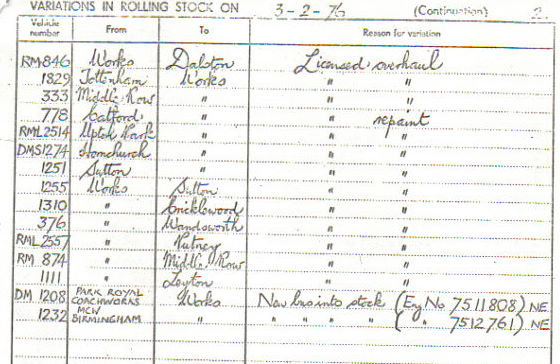 VARIATIONS IN ROLLING STOCK ON 3-2-76 (Continuation) 2.
Vehicle number From To Reason for variation
RM 846 Works Dalston Licensed overhaul
1829 Tottenham Works " "
333 Middle Row " " "
778 Catford " " repaint
RML 2514 Upton Park " " "
DMS 1274 Hornchurch " " "
1251 Sutton " " "
1255 Works Sutton " "
1310 " Cricklewood " "
376 " Wandsworth " "
RML 2557 " Putney " "
RM 874 " Middle Row " "
1111 " Leyton " "
DM 1208 PARK ROYAL COACHWORKS Works New bus into stock (Eng No 7511808) NE
1232 MCW BIRMINGHAM " " " " " ( " 7512761) NE